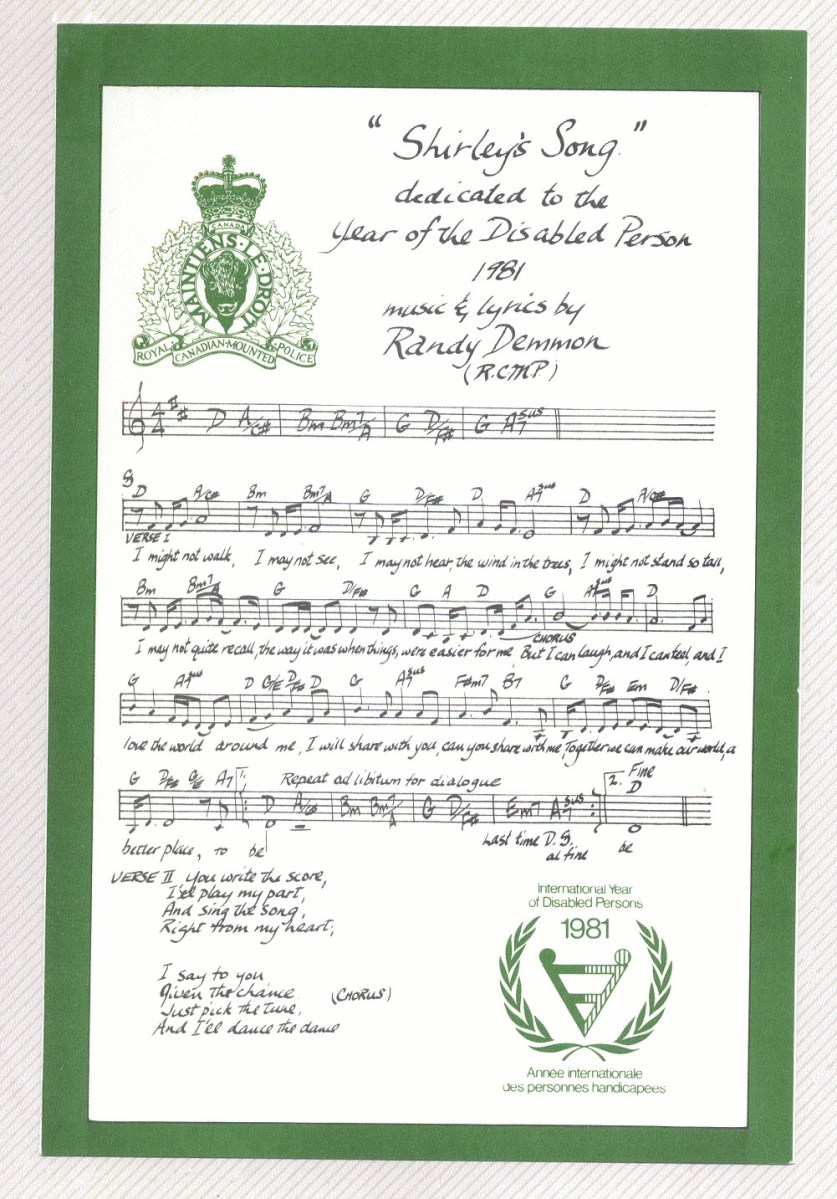 "Shirley's Song."
dedicated to the
Year of the Disabled Person
1981
music & lyrics by
Randy Demmon
(R.C.M.P)
CANADA
MAINTIENS·LE·DROIT
ROYAL CANADIAN·MOUNTED POLICE
4/4 D A/C# Bm Bm7/A G D/F# G A7sus
D A/C# Bm Bm7/A G D/F# D A7sus D A/C#
VERSE I
I might not walk, I may not see, I may not hear, the wind in the trees, I might not stand so tall,
Bm Bm7/A G D/F# G A D G A7sus D
CHORUS
I may not quite recall, the way it was when things, were easier for me, But I can laugh, and I can feel, and I
G A7sus D G/E D/F# D G A7sus F#m7 B7 G D/F# Em D/F#
love the world around me, I will share with you, can you share with me, Together we can make our world, a
G D/F# G/E A7 1. Repeat ad libitum for dialogue 2. Fine
D A/C# Bm Bm7/A G D/F# Em7 A7sus D
better place, to be Last time D.S. be
al fine
VERSE II You write the score,
I'll play my part,
And sing the song,
Right from my heart;
I say to you
Given the chance (CHORUS)
Just pick the tune,
And I'll dance the dance
International Year
of Disabled Persons
1981
Année internationale
des personnes handicapées